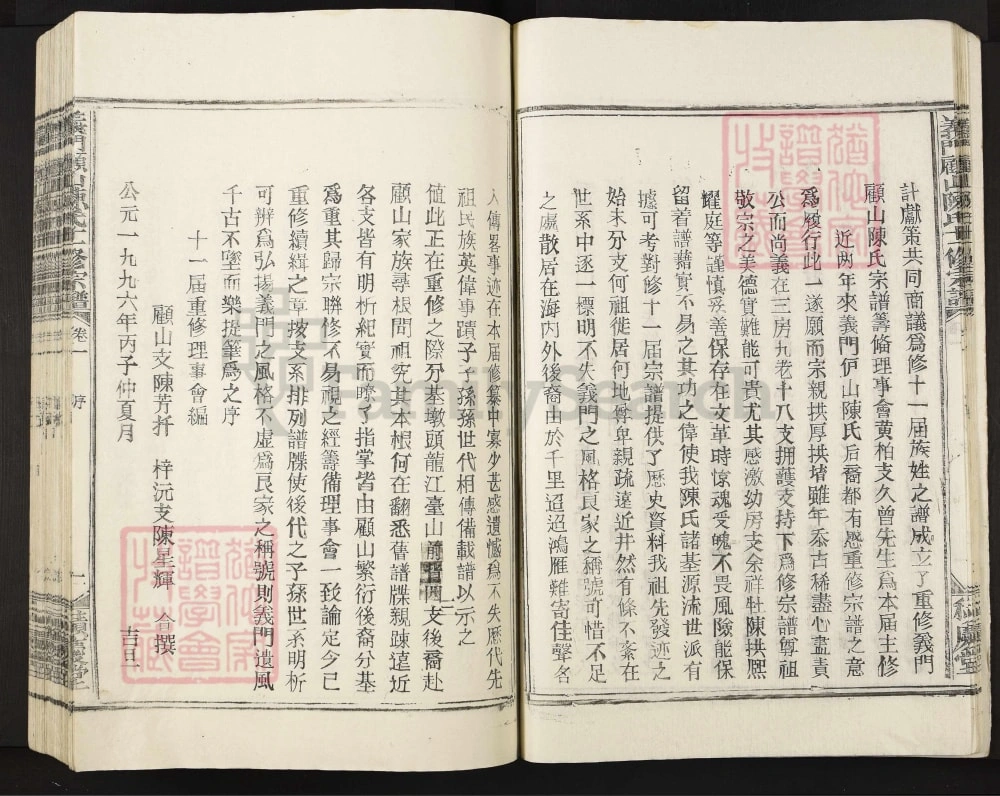 計獻策共同商議爲修十一屆族姓之譜成立了重修義門
顧山陳氏宗譜籌偹理事會黄柏支久曾先生爲本届主修
近两年來義門伊山陳氏后裔都有感重修宗譜之意
爲履行此一遂願而宗親拱厚拱堵雖年叅古稀盡心盡責
公而尚義在三房九老十八支拥護支持下爲修宗譜尊祖
敬宗之美德實難能可貴尤其感激幼房支余祥牡陳拱熙
耀庭等謹慎妥善保存在文革時惊魂受魄不畏風險能保
留着譜藉實不易之其功之偉使我陳氏諸基源流世派有
據可考對修十一届宗譜提供了歷史資料我祖先發迹之
始末分支何祖徙居何地尊卑親疏遠近井然有條不紊在
世系中逐一標明不失義門之風格良家之稱號可惜不足
之處散居在海内外後裔由於千里迢迢鴻雁難寄佳聲名
人傳畧事迹在本届修纂中寡少甚感遺憾爲不失歷代先
祖民族英偉事蹟子子孫孫世代相傳備載譜以示之
值此正在重修之際分基墩頭龍江臺山支後裔赴
顧山家族尋根問祖究其本根何在翻悉舊譜牒親踈遠近
各支皆有明析紀實而瞭了指掌皆由顧山繁衍後裔分基
爲重其歸宗聯修不易視之經籌備理事會一致論定今己
重修續緝之章按支系排列譜牒使後代之子孫世系明析
可辨爲弘揚義門之風格不虛爲良家之稱號則義門遺風
千古不墜而樂提筆爲之序
十一届重修理事會編
顧山支陳芳扦 梓沅支陳星輝 合撰
公元一九九六年丙子仲夏月 吉旦
義門顧山陳氏十一修宗譜
卷一 序
FamilySearch